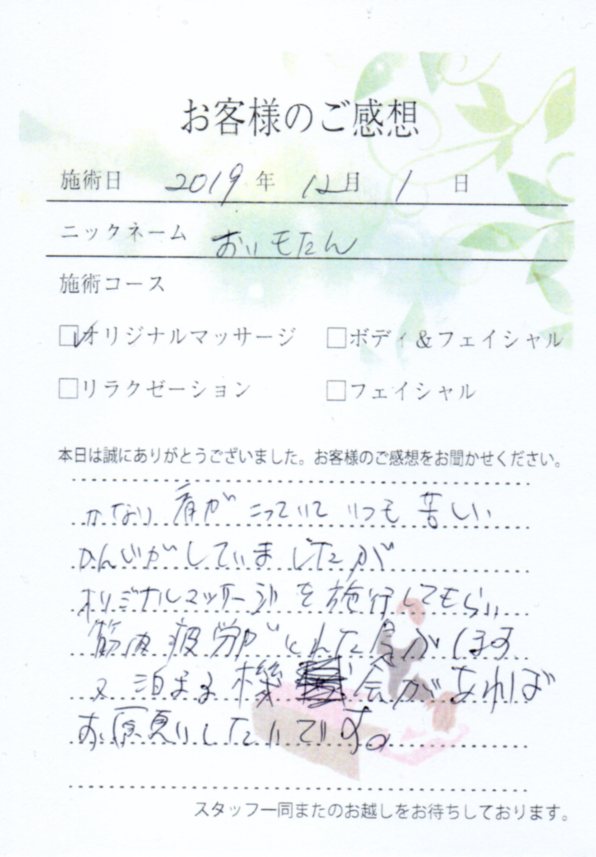 お客様のご感想
施術日 2019年 12月 1日
ニックネーム おいもたん
施術コース
オリジナルマッサージ □ボディ＆フェイシャル
□リラクゼーション □フェイシャル
本日は誠にありがとうございました。お客様のご感想をお聞かせください。
かなり肩がこっていていつも苦しい
かんじがしていましたが
オリジナルマッサージを施行してもらい
筋肉疲労がとれた気がします
又泊まる機会があれば
お願いしたいです。
スタッフ一同またのお越しをお待ちしております。